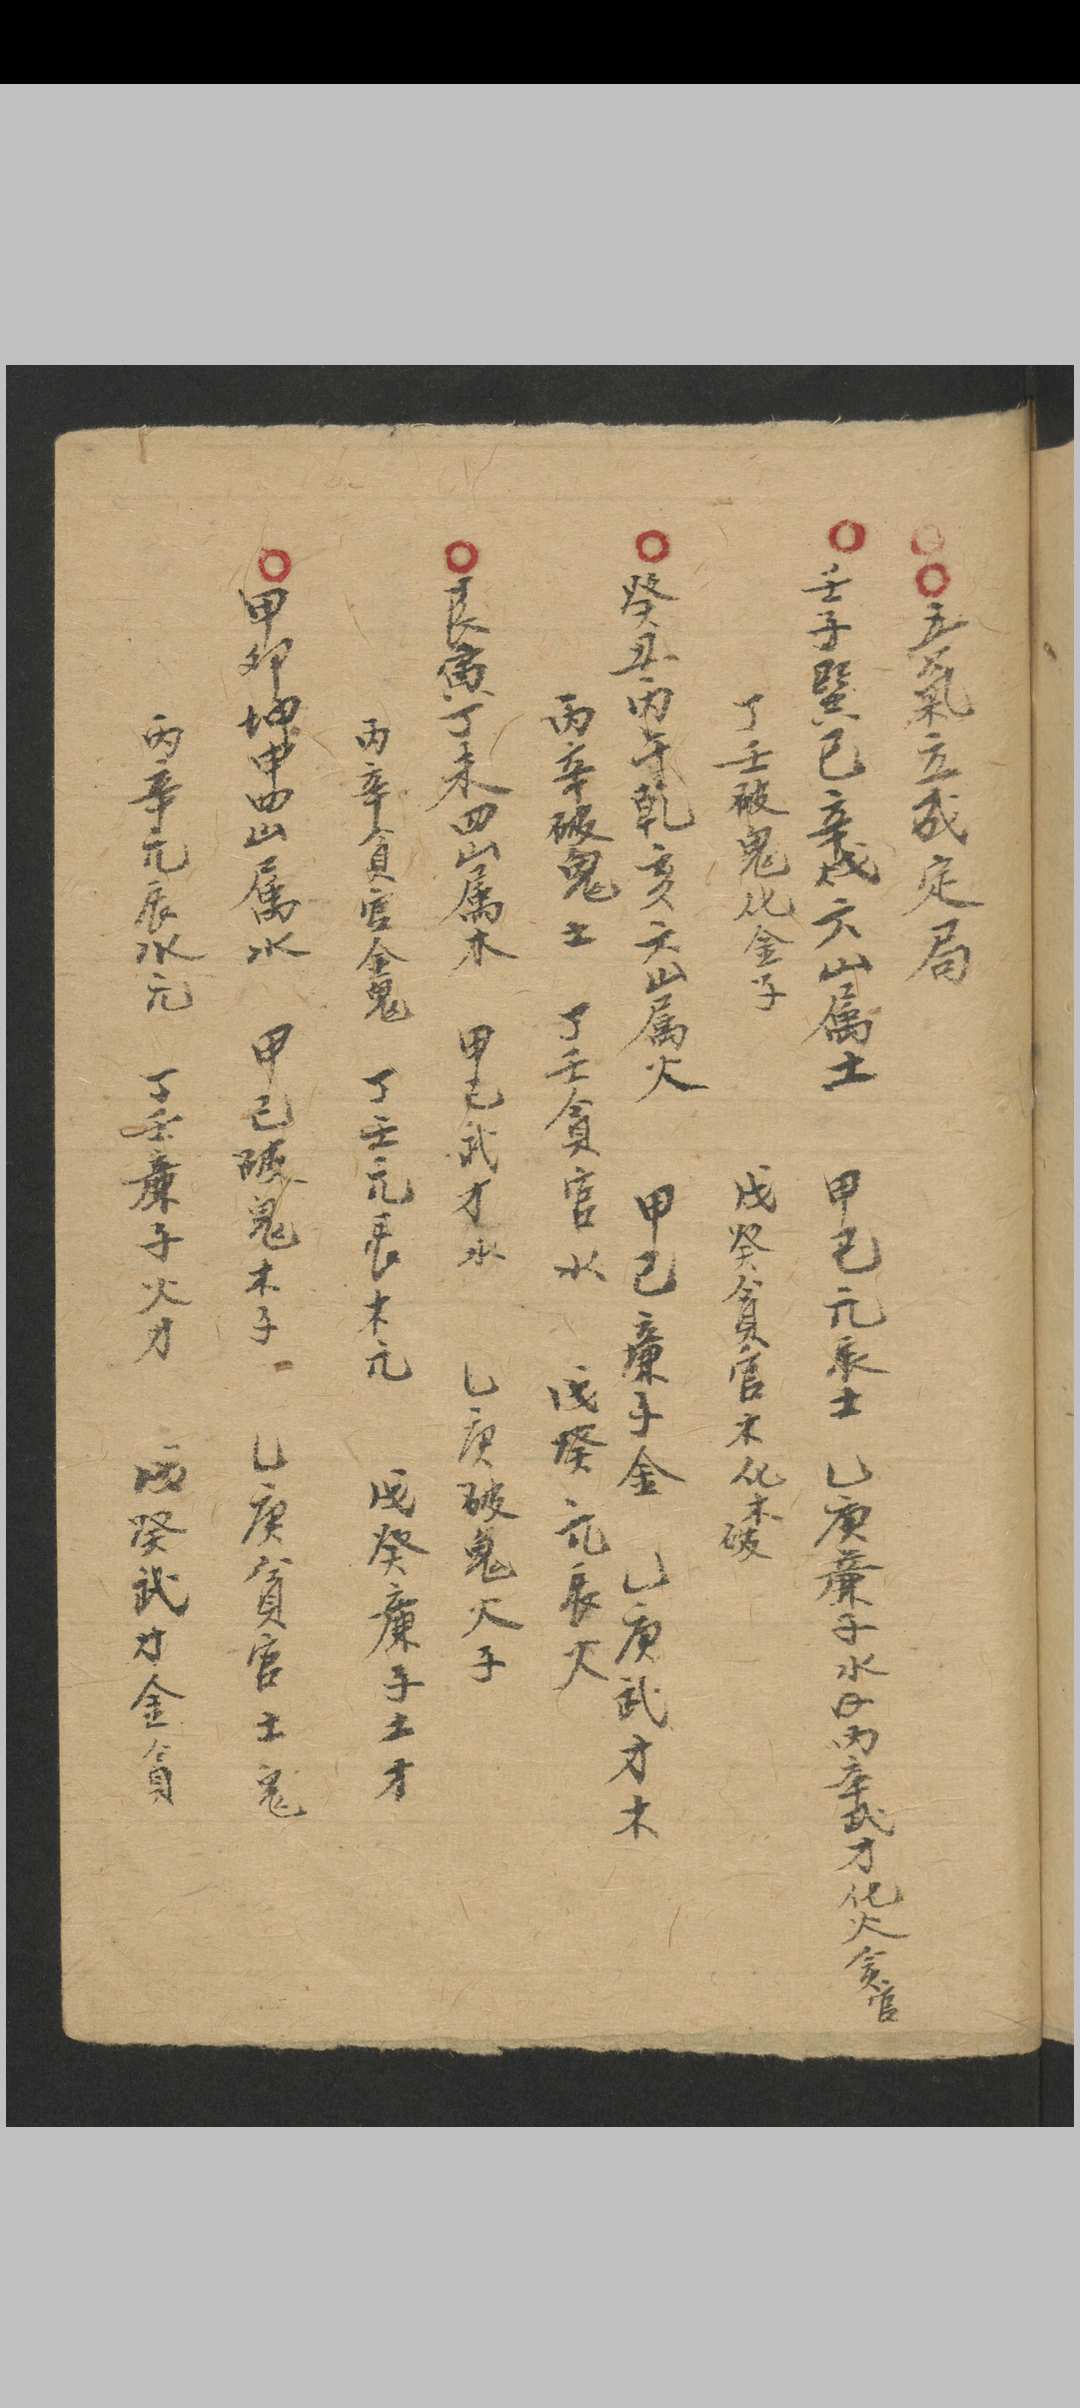 五氣立成定局
壬子巽巳辛戌六山属土 甲己元辰土 乙庚廉子水子丙辛武才化火貪官
丁壬破鬼化金子 戊癸貪官木化木破
癸丑丙午乾亥六山属火 甲己廉子金 乙庚武才木
丙辛破鬼土 丁壬貪官水 戊癸元辰火
艮寅丁未四山属木 甲己武才水 乙庚破鬼火子
丙辛貪官金鬼 丁壬元辰木元 戊癸廉子土才
甲卯坤申四山属水 甲己破鬼木子 乙庚貪官土鬼
丙辛元辰水元 丁壬廉子火才 戊癸武才金貪